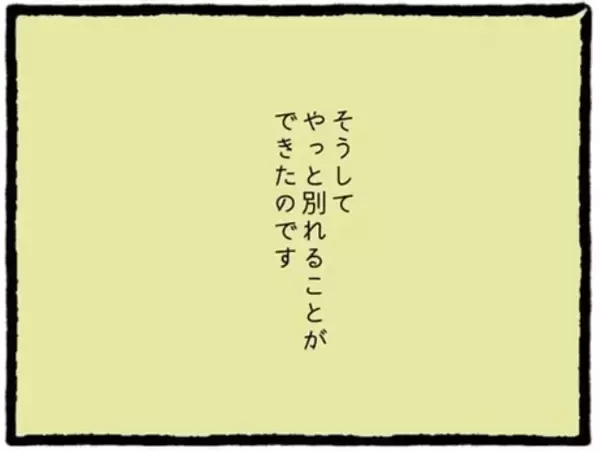 そうして
やっと別れることが
できたのです